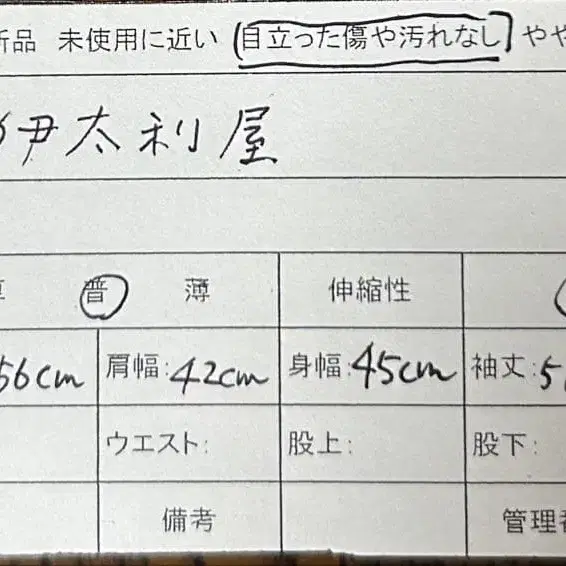 新品 未使用に近い 目立った傷や汚れなし やや
伊太利屋
普 薄 伸縮性
56cm 肩幅:42cm 身幅:45cm 袖丈:5
ウエスト: 股上: 股下:
備考 管理